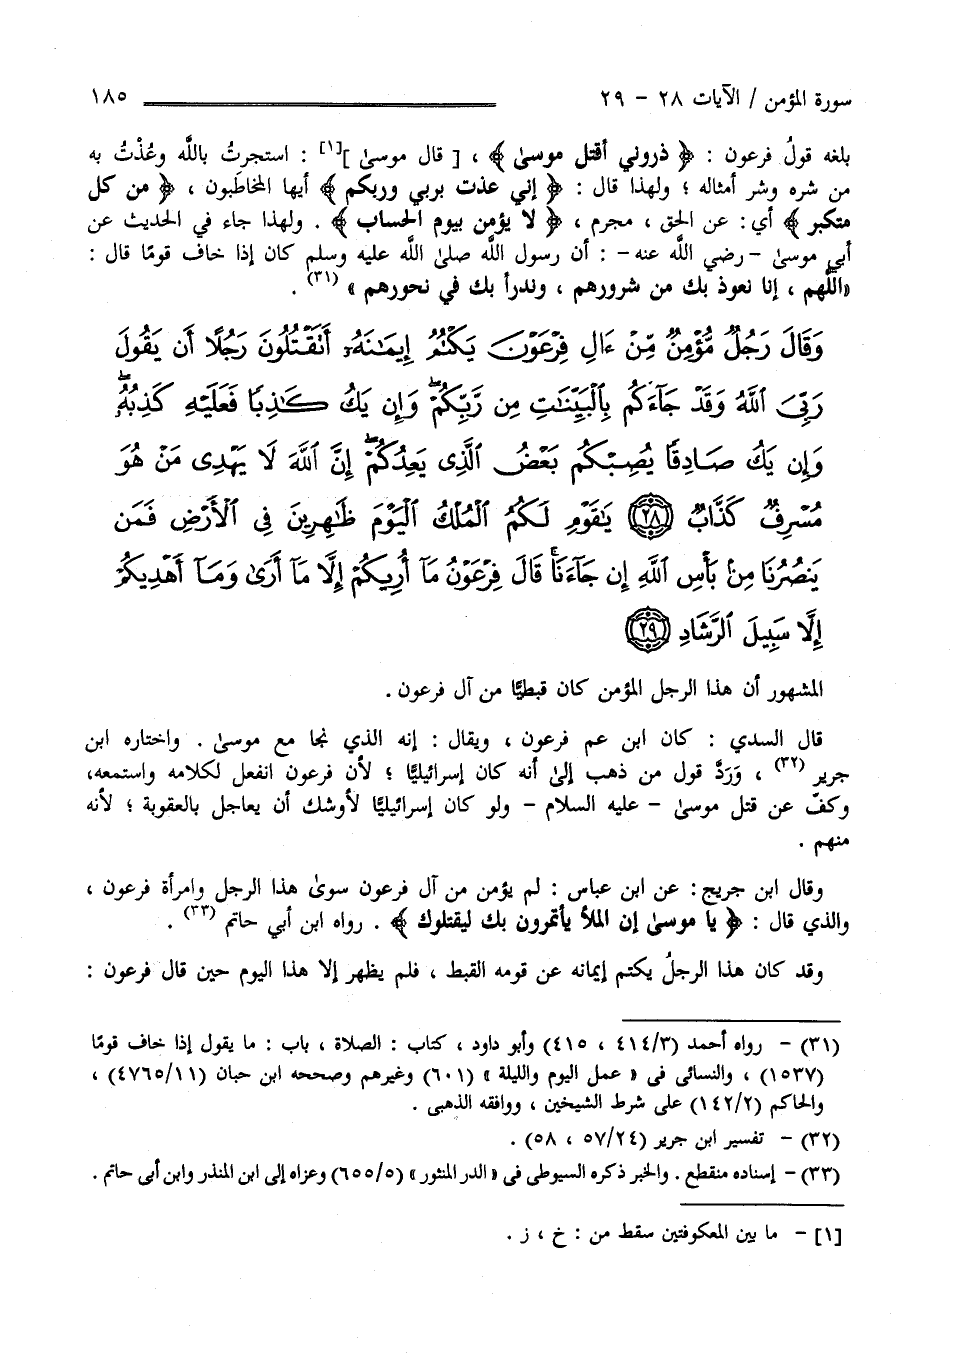 سورة المؤمن / الآيات ٢٨ - ٢٩ ١٨٥
بلغه قولُ فرعون : ﴿ ذروني أقتل موسىٰ ﴾ ، [ قال موسىٰ ][١] : استجرتُ باللَّه وعُذْتُ به
من شره وشر أمثاله ؛ ولهذا قال : ﴿ إني عذت بربي وربكم ﴾ أيها المخاطَبون ، ﴿ من كل
متكبر ﴾ أي: عن الحق ، مجرم ، ﴿ لا يؤمن بيوم الحساب ﴾ . ولهذا جاء في الحديث عن
أبي موسىٰ -رضي اللَّه عنه- : أن رسول اللَّه صلىٰ اللَّه عليه وسلم كان إذا خاف قومًا قال :
«اللَّهم ، إنا نعوذ بك من شرورهم ، وندرأ بك في نحورهم » (٣١) .
وَقَالَ رَجُلٌ مُّؤْمِنٌ مِّنْ ءَالِ فِرْعَوْنَ يَكْتُمُ إِيمَٰنَهُۥٓ أَتَقْتُلُونَ رَجُلًا أَن يَقُولَ
رَبِّىَ ٱللَّهُ وَقَدْ جَآءَكُم بِٱلْبَيِّنَٰتِ مِن رَّبِّكُمْ ۖ وَإِن يَكُ كَٰذِبًا فَعَلَيْهِ كَذِبُهُۥ ۖ
وَإِن يَكُ صَادِقًا يُصِبْكُم بَعْضُ ٱلَّذِى يَعِدُكُمْ ۖ إِنَّ ٱللَّهَ لَا يَهْدِى مَنْ هُوَ
مُسْرِفٌ كَذَّابٌ ﴿٢٨﴾ يَٰقَوْمِ لَكُمُ ٱلْمُلْكُ ٱلْيَوْمَ ظَٰهِرِينَ فِى ٱلْأَرْضِ فَمَن
يَنصُرُنَا مِنۢ بَأْسِ ٱللَّهِ إِن جَآءَنَا ۚ قَالَ فِرْعَوْنُ مَآ أُرِيكُمْ إِلَّا مَآ أَرَىٰ وَمَآ أَهْدِيكُمْ
إِلَّا سَبِيلَ ٱلرَّشَادِ ﴿٢٩﴾
المشهور أن هذا الرجل المؤمن كان قبطيًّا من آل فرعون .
قال السدي : كان ابن عم فرعون ، ويقال : إنه الذي نجا مع موسىٰ . واختاره ابن
جرير (٣٢) ، وَرَدَّ قول من ذهب إلىٰ أنه كان إسرائيليًّا ؛ لأن فرعون انفعل لكلامه واستمعه،
وكفّ عن قتل موسىٰ - عليه السلام - ولو كان إسرائيليًّا لأوشك أن يعاجل بالعقوبة ؛ لأنه
منهم .
وقال ابن جريج: عن ابن عباس : لم يؤمن من آل فرعون سوىٰ هذا الرجل وامرأة فرعون ،
والذي قال : ﴿ يا موسىٰ إن الملأ يأتمرون بك ليقتلوك ﴾ . رواه ابن أبي حاتم (٣٣) .
وقد كان هذا الرجلُ يكتم إيمانه عن قومه القبط ، فلم يظهر إلا هذا اليوم حين قال فرعون :
(٣١) - رواه أحمد (٤١٤/٣ ، ٤١٥) وأبو داود ، كتاب : الصلاة ، باب : ما يقول إذا خاف قومًا
(١٥٣٧) ، والنسائى فى « عمل اليوم والليلة » (٦٠١) وغيرهم وصححه ابن حبان (٤٧٦٥/١١) ،
والحاكم (١٤٢/٢) على شرط الشيخين ، ووافقه الذهبى .
(٣٢) - تفسير ابن جرير (٥٧/٢٤ ، ٥٨) .
(٣٣) - إسناده منقطع . والخبر ذكره السيوطى فى «الدر المنثور» (٦٥٥/٥) وعزاه إلى ابن المنذر وابن أبى حاتم .
[١] - ما بين المعكوفتين سقط من : خ ، ز .